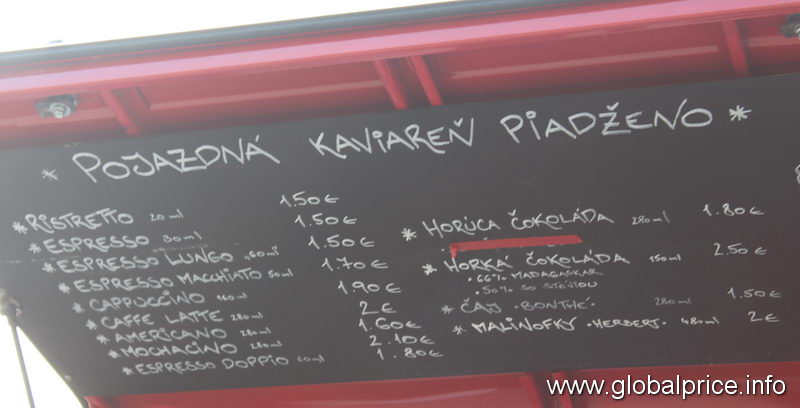 * POJAZDNÁ KAVIAREŇ PIADŽENO *
* RISTRETTO 20 ml 1.50 €
* ESPRESSO 30 ml 1.50 €
* ESPRESSO LUNGO 60 ml 1.50 €
* ESPRESSO MACCHIATO 50 ml 1.70 €
* CAPPUCCINO 160 ml 1.90 €
* CAFFE LATTE 280 ml 2 €
* AMERICANO 280 ml 1.60 €
* MOCHACINO 280 ml 2.10 €
* ESPRESSO DOPPIO 60 ml 1.80 €
* HORÚCA ČOKOLÁDA 280 ml 1.80 €
* HORKÁ ČOKOLÁDA 150 ml 2.50 €
• 66% MADAGASKAR
• 50% SO ŠTÉVIOU
* ČAJ • BONTHÉ • 280 ml 1.50 €
* MALINOFKY • HERBERT • 480 ml 2 €
www.globalprice.info